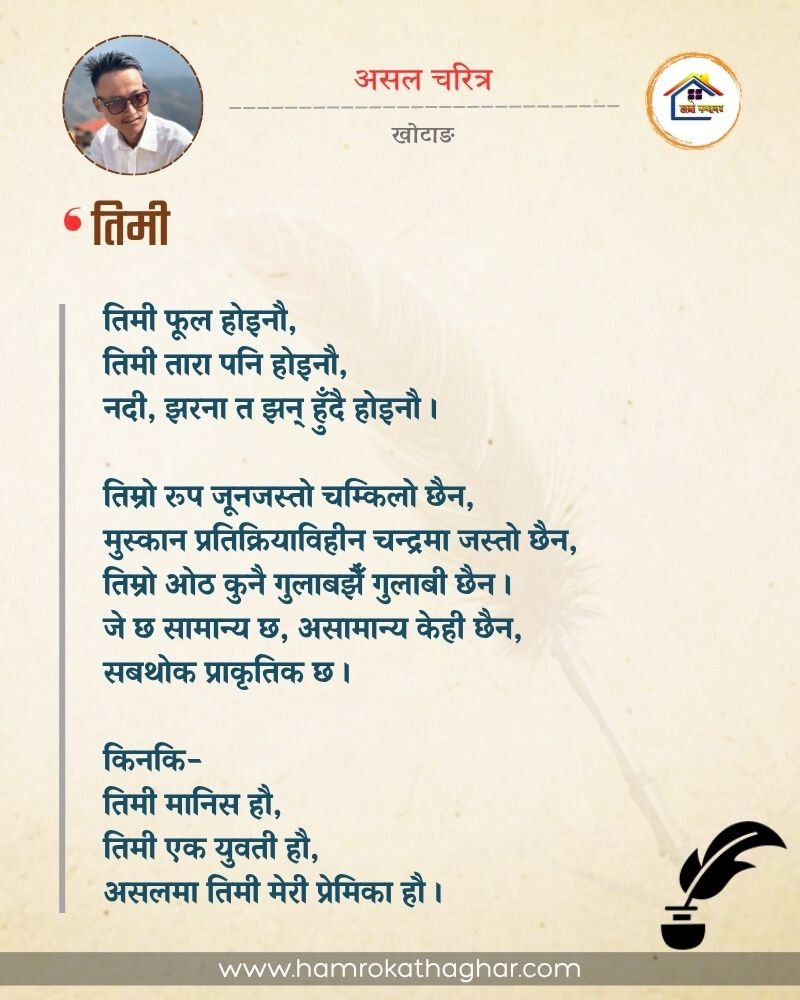 असल चरित्र
खोटाङ
हाम्रो कथाघर
तिमी
तिमी फूल होइनौ,
तिमी तारा पनि होइनौ,
नदी, झरना त झन् हुँदै होइनौ।
तिम्रो रुप जूनजस्तो चम्किलो छैन,
मुस्कान प्रतिक्रियाविहीन चन्द्रमा जस्तो छैन,
तिम्रो ओठ कुनै गुलाबझैँ गुलाबी छैन।
जे छ सामान्य छ, असामान्य केही छैन,
सबथोक प्राकृतिक छ।
किनकि-
तिमी मानिस हौ,
तिमी एक युवती हौ,
असलमा तिमी मेरी प्रेमिका हौ।
www.hamrokathaghar.com